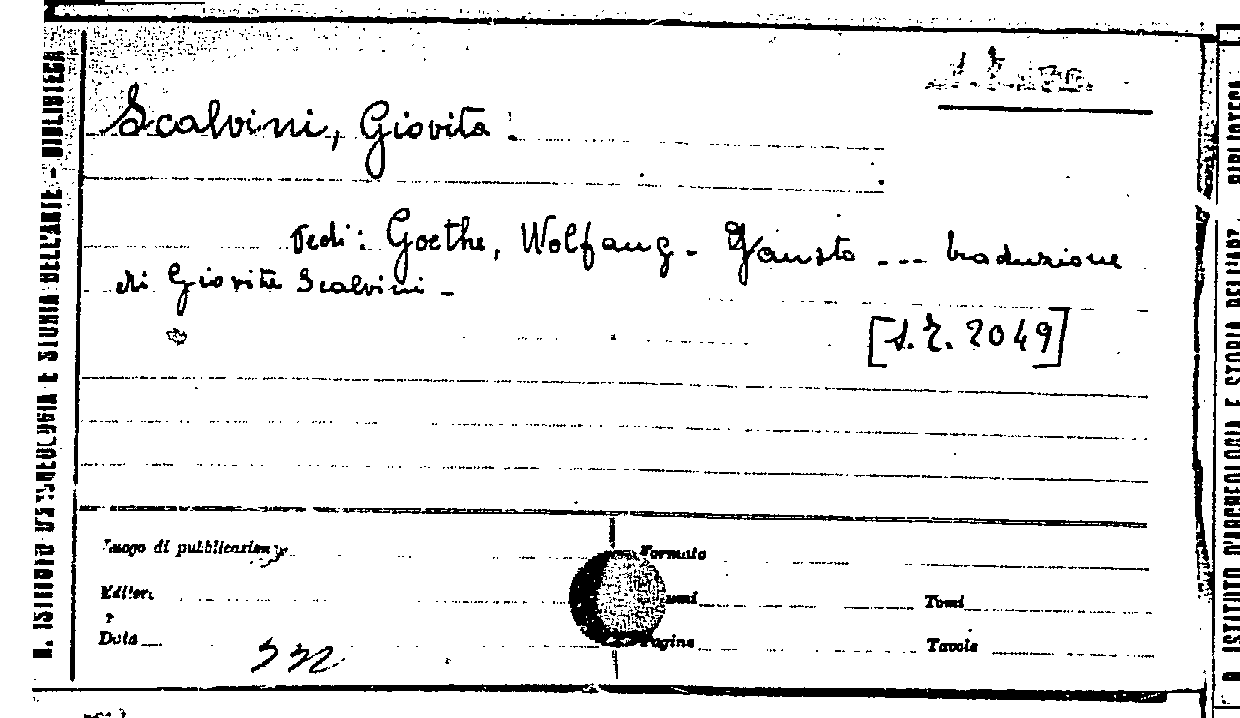 Scalvini, Giovita.
Vedi: Goethe, Wolfang - Fausto --- traduzione
di Giovita Scalvini -
[s.r. 2049]
Luogo di pubblicazione
Formato
Editore
Tomi
Data
Pagine
Tavole
R. ISTITUTO D'ARCHEOLOGIA E STORIA DELL'ARTE - BIBLIOTECA
R. ISTITUTO D'ARCHEOLOGIA E STORIA DELL'ART. BIBLIOTECA